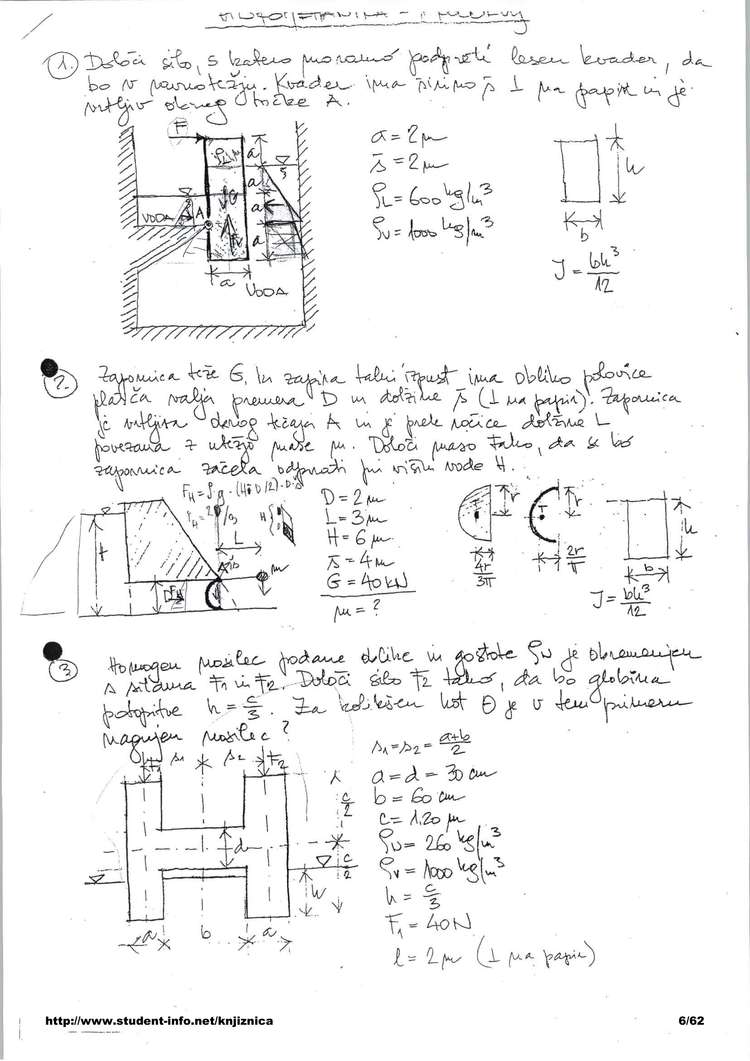 HIDROMEHANIKA -
1. Določi silo, s katero moramo podpreti lesen kvader, da
bo v ravnotežju. Kvader ima širino š ⊥ na papir in je
vrtljiv okrog točke A.
F
ρL
a
a
a
a
G
VODA
A
Fv
a
VODA
a = 2m
š = 2m
ρL = 600 kg/m³
ρv = 1000 kg/m³
h
b
J = bh³/12
2. Zapornica teže G, ki zapira talni izpust ima obliko polovice
plašča valja premera D in dolžine š (⊥ na papir). Zapornica
je vrtljiva okrog tečaja A in je preko ročice dolžine L
povezana z utežjo mase m. Določi maso tako, da se bo
zapornica začela odpirati pri višini vode H.
FH = ρg·(H-D/2)·D·š
L
A
m
D
D = 2m
L = 3m
H = 6m
š = 4m
G = 40 kN
m = ?
T
r
4r/3π
T
r
2r/π
h
b
J = bh³/12
3 Homogen nosilec podane oblike in gostote ρN je obremenjen
s silama F1 in F2. Določi silo F2 tako, da bo globina
potopitve h = c/3. Za kolikšen kot Θ je v tem primeru
nagnjen nosilec?
F1 s1 s2 F2
c/2
d
c/2
h
a b a
s1 = s2 = (a+b)/2
a = d = 30 cm
b = 60 cm
c = 1,20 m
ρN = 260 kg/m³
ρv = 1000 kg/m³
h = c/3
F1 = 40N
l = 2m (⊥ na papir)
http://www.student-info.net/knjiznica 6/62